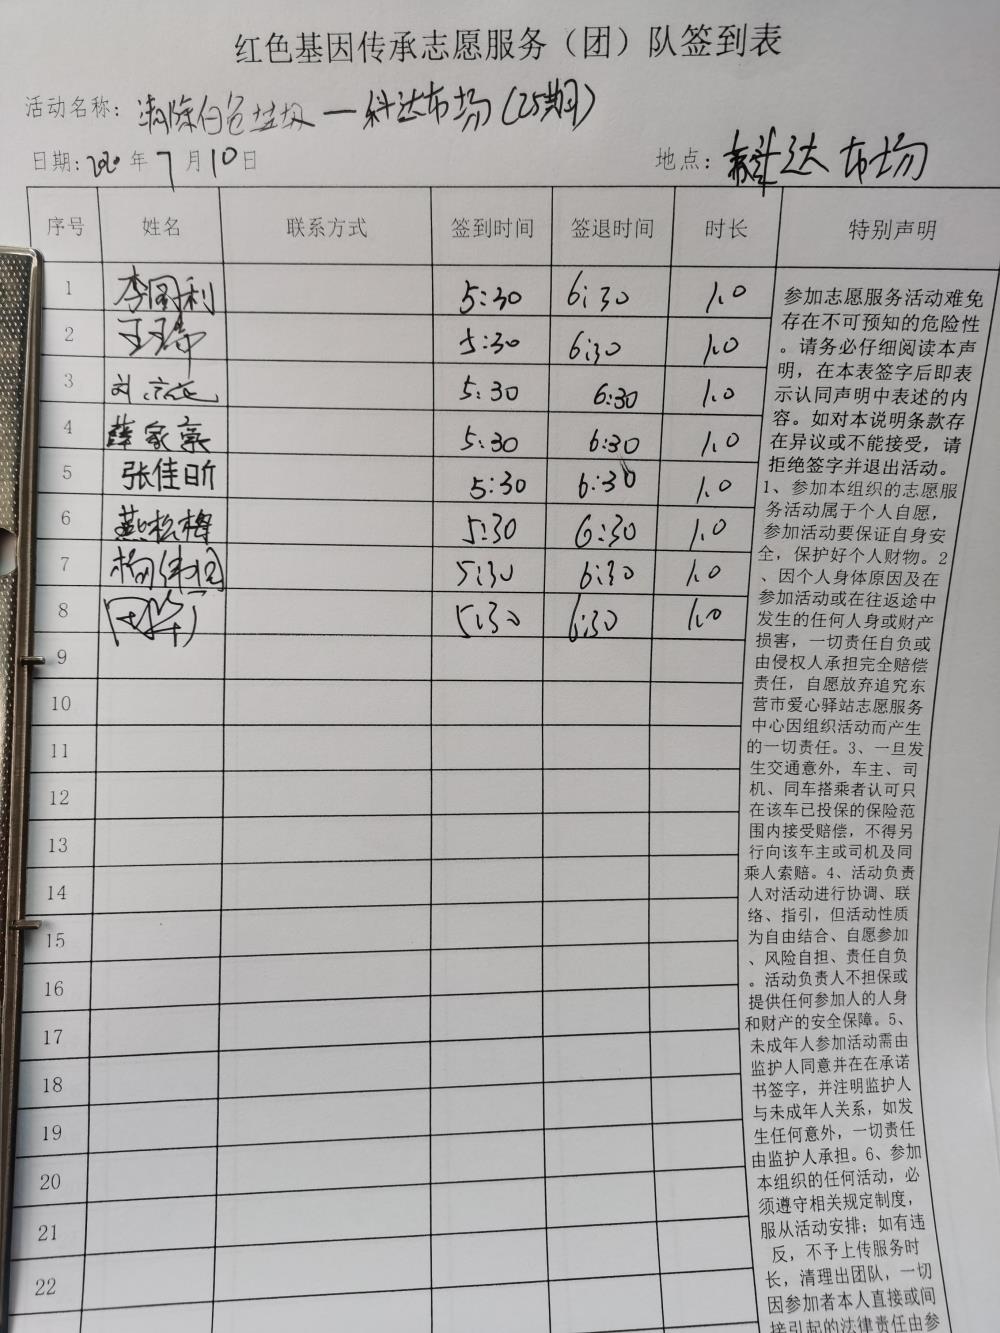 红色基因传承志愿服务（团）队签到表
活动名称: 清除白色垃圾—科达市场(25期)
日期: 2020年7月10日 地点: 科达市场
序号 姓名 联系方式 签到时间 签退时间 时长 特别声明
1 李国利 5:30 6:30 1.0
2 5:30 6:30 1.0
3 5:30 6:30 1.0
4 薛家豪 5:30 6:30 1.0
5 张佳昕 5:30 6:30 1.0
6 5:30 6:30 1.0
7 5:30 6:30 1.0
8 5:30 6:30 1.0
9
10
11
12
13
14
15
16
17
18
19
20
21
22
参加志愿服务活动难免
存在不可预知的危险性
。请务必仔细阅读本声
明，在本表签字后即表
示认同声明中表述的内
容。如对本说明条款存
在异议或不能接受，请
拒绝签字并退出活动。
1、参加本组织的志愿服
务活动属于个人自愿，
参加活动要保证自身安
全，保护好个人财物。2
、因个人身体原因及在
参加活动或在往返途中
发生的任何人身或财产
损害，一切责任自负或
由侵权人承担完全赔偿
责任，自愿放弃追究东
营市爱心驿站志愿服务
中心因组织活动而产生
的一切责任。3、一旦发
生交通意外，车主、司
机、同车搭乘者认可只
在该车已投保的保险范
围内接受赔偿，不得另
行向该车主或司机及同
乘人索赔。4、活动负责
人对活动进行协调、联
络、指引，但活动性质
为自由结合、自愿参加
、风险自担、责任自负
。活动负责人不担保或
提供任何参加人的人身
和财产的安全保障。5、
未成年人参加活动需由
监护人同意并在在承诺
书签字，并注明监护人
与未成年人关系，如发
生任何意外，一切责任
由监护人承担。6、参加
本组织的任何活动，必
须遵守相关规定制度，
服从活动安排；如有违
反，不予上传服务时
长，清理出团队，一切
因参加者本人直接或间
接引起的法律责任由参